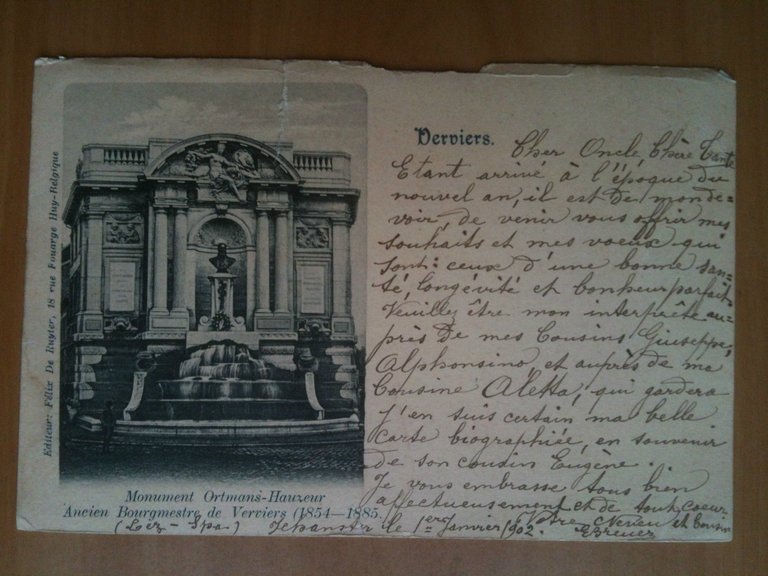 Editeur: Félix De Ruyter, 18 rue Fouarge Huy-Belgique
Verviers.
Cher Oncle, Chère Tante
Etant arrivé à l'époque du
nouvel an, il est de mon de-
voir, de venir vous offrir mes
souhaits et mes voeux qui
sont: ceux d'une bonne san-
té, longévité et bonheur parfait.
Veuillez être mon interprête au-
près de mes Cousins Giuseppe,
Alphonsino, et auprès de ma
Cousine Aletta, qui gardera
j'en suis certain ma belle
carte biographiée, en souvenir
de son cousin Eugène.
Je vous embrasse tous bien
affectueusement et de tout coeur
Votre Neveu et Cousin
Monument Ortmans-Hauzeur
Ancien Bourgmestre de Verviers (1854—1885.
le 1er Janvier 1902.